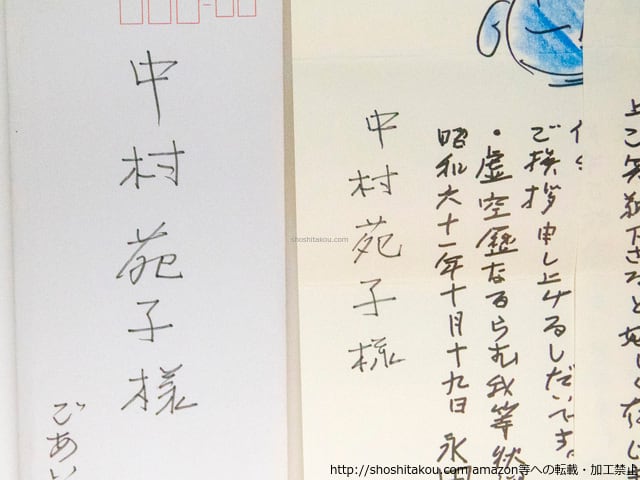 中村苑子様
ごあい
ご挨拶申し上げるしだいです。
・虚空歴なるらむ我等状
昭和六十一年十月十九日 永田
中村苑子様
shoshitakou.com
http://shoshitakou.com amazon等への転載・加工禁止